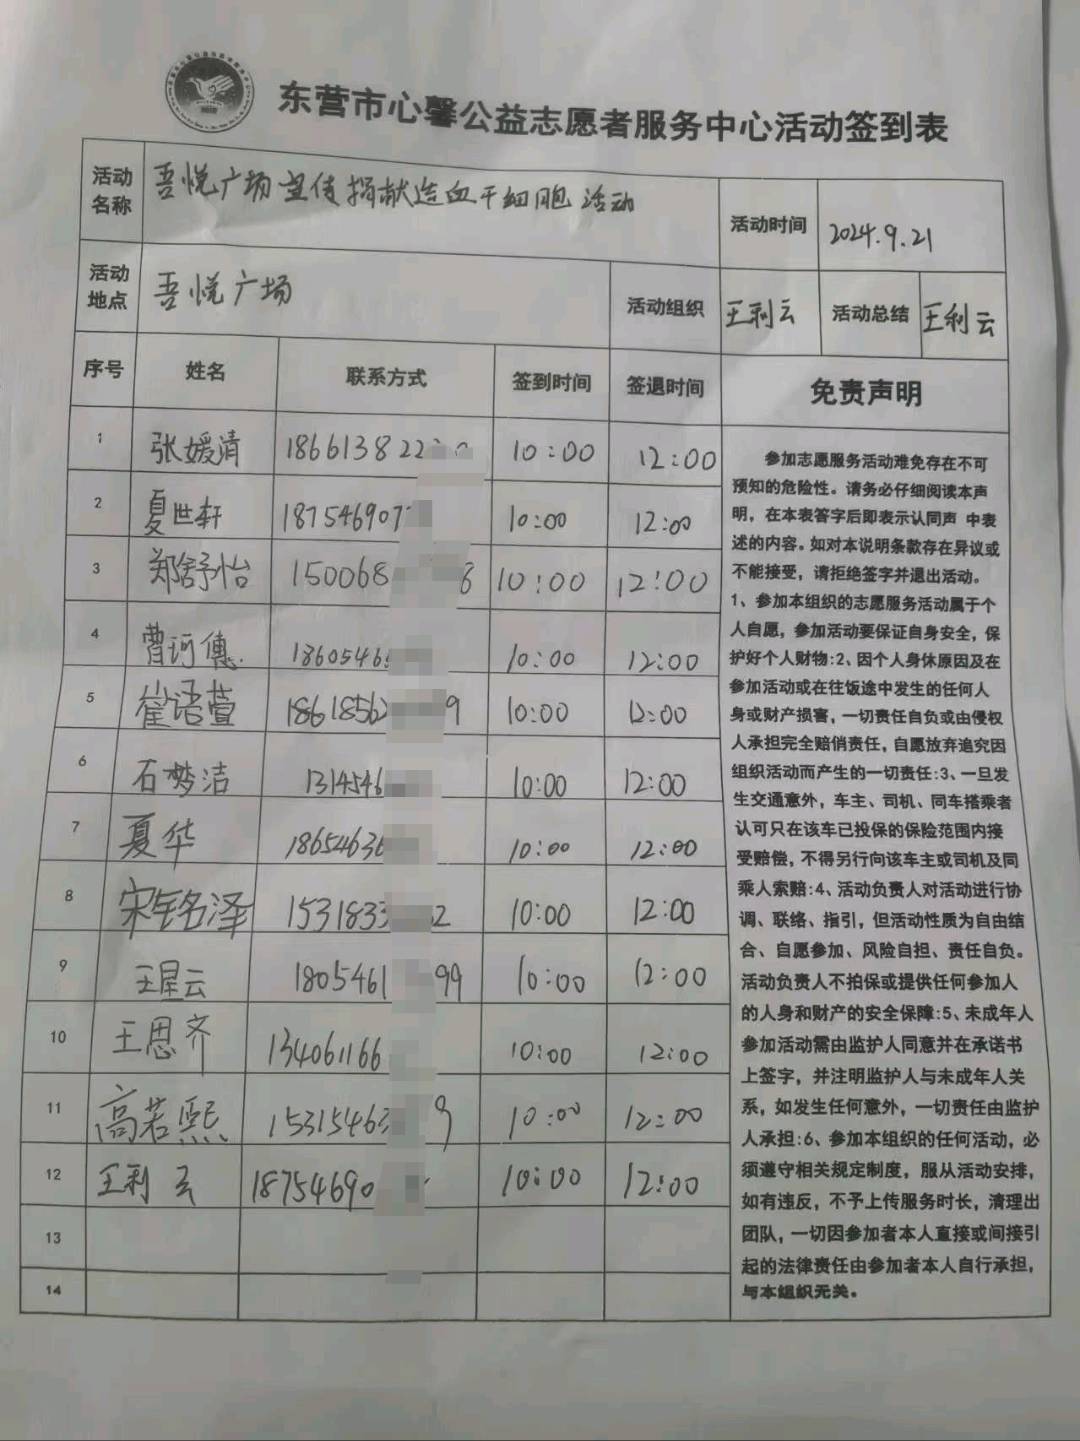 东营市心馨公益志愿者服务中心活动签到表
活动名称 吾悦广场宣传捐献造血干细胞活动 活动时间 2024.9.21
活动地点 吾悦广场 活动组织 王利云 活动总结 王利云
序号 姓名 联系方式 签到时间 签退时间 免责声明
1 张媛清 186613822 10:00 12:00
2 夏世轩 187546907 10:00 12:00
3 郑舒怡 150068 8 10:00 12:00
4 曹珂 1860546 10:00 12:00
5 崔语萱 1861856 9 10:00 12:00
6 石梦洁 1314546 10:00 12:00
7 夏华 1865463 10:00 12:00
8 宋铭泽 1531833 2 10:00 12:00
9 王星云 1805461 99 10:00 12:00
10 王思齐 134061166 10:00 12:00
11 高若熙 1531546 9 10:00 12:00
12 王利云 18754690 10:00 12:00
13
14
参加志愿服务活动难免存在不可
预知的危险性。请务必仔细阅读本声
明，在本表答字后即表示认同声 中表
述的内容。如对本说明条款存在异议或
不能接受，请拒绝签字并退出活动。
1、参加本组织的志愿服务活动属于个
人自愿，参加活动要保证自身安全，保
护好个人财物:2、因个人身休原因及在
参加活动或在往饭途中发生的任何人
身或财产损害，一切责任自负或由侵权
人承担完全赔俏责任，自愿放弃追究因
组织活动而产生的一切责任:3、一旦发
生交通意外，车主、司机、同车搭乘者
认可只在该车已投保的保险范围内接
受赔偿，不得另行向该车主或司机及同
乘人索赔:4、活动负责人对活动进行协
调、联络、指引，但活动性质为自由结
合、自愿参加、风险自担、责任自负。
活动负责人不拍保或提供任何参加人
的人身和财产的安全保障:5、未成年人
参加活动需由监护人同意并在承诺书
上签字，并注明监护人与未成年人关
系，如发生任何意外，一切责任由监护
人承担:6、参加本组织的任何活动，必
须遵守相关规定制度，服从活动安排，
如有违反，不予上传服务时长，清理出
团队，一切因参加者本人直接或间接引
起的法律责任由参加者本人自行承担，
与本组织无关。